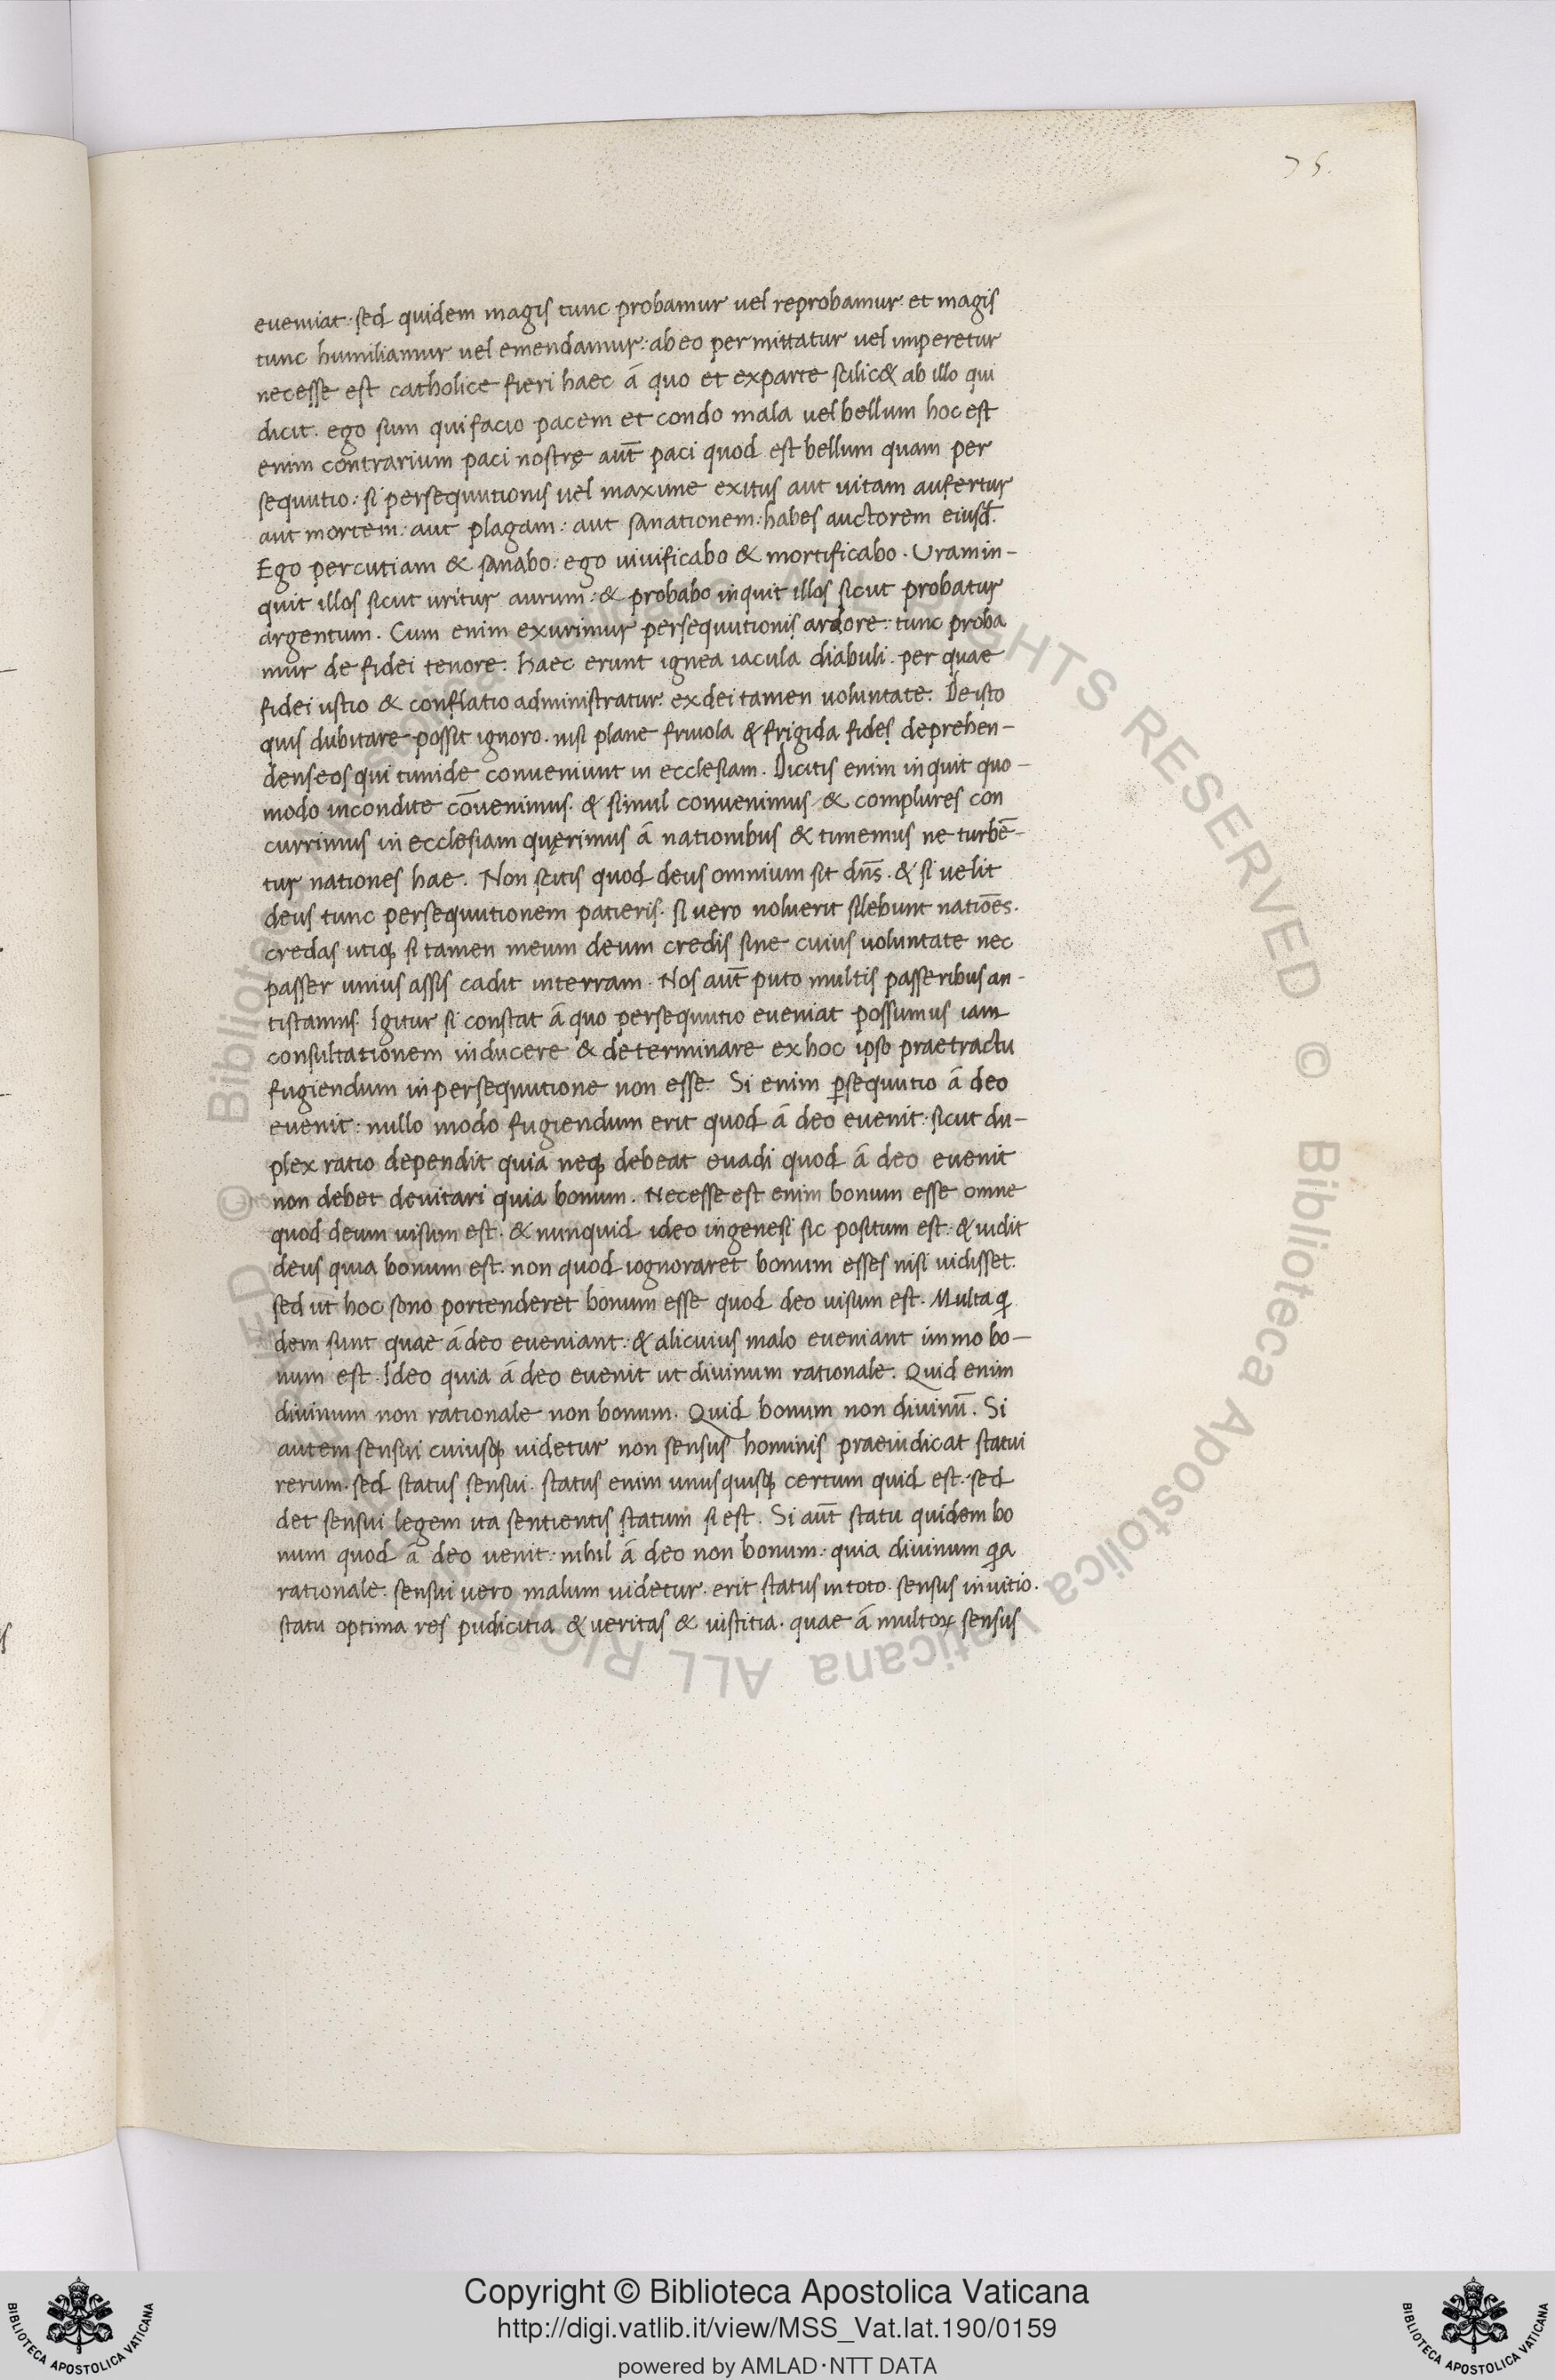 75.
eveniat. sed quidem magis tunc probamur vel reprobamur. et magis
tunc humiliamur vel emendamur: ab eo permittatur vel imperetur
necesse est catholice fieri haec á quo et ex parte scilic& ab illo qui
dicit. ego sum qui facio pacem et condo mala vel bellum hoc est
enim contrarium paci nostrę aut̄ paci quod est bellum quam per
sequutio: si persequutionis vel maxime exitus aut uitam aufertur
aut mortem: aut plagam: aut sanationem: habes auctorem eiusd̄.
Ego percutiam & sanabo: ego uiuificabo & mortificabo. Uram in-
quit illos sicut uritur aurum: & probabo inquit illos sicut probatur
argentum. Cum enim exurimur persequutionis ardore: tunc proba
mur de fidei tenore. haec erunt ignea iacula diabuli. per quae
fidei ustio & conflatio administratur. ex dei tamen uoluntate. De isto
quis dubitare possit ignoro. nisi plane friuola & frigida fides deprehen-
dens eos qui timide conueniunt in ecclesiam. Dicitis enim inquit quo-
modo incondite cōvenimus. & simul convenimus & complures con
currimus in ecclesiam quęrimus á nationibus & timemus ne turbē-
tur nationes hae. Non scitis quod deus omnium sit dn̄s. & si velit
deus tunc persequutionem patieris. si vero noluerit silebunt natiōes.
credas utiq si tamen meum deum credis sine cuius voluntate nec
passer unius assis cadit in terram. Nos aut̄ puto multis passeribus an-
tistamus. Igitur si constat á quo persequutio eveniat possumus iam
consultationem inducere & determinare ex hoc ipso praetractu
fugiendum in persequutione non esse. Si enim p̱sequutio á deo
evenit: nullo modo fugiendum erit quod á deo evenit: sicut du-
plex ratio dependit quia neq debeat evadi quod á deo evenit
non debet devitari quia bonum. Necesse est enim bonum esse omne
quod deum visum est. & nunquid ideo in genesi sic positum est: & vidit
deus quia bonum est. non quod iognoraret bonum esses nisi vidisset.
sed ut hoc sono portenderet bonum esse quod deo visum est. Multa q
dem sunt quae á deo eveniant: & alicuius malo eveniant immo bo-
num est. Ideo quia á deo evenit ut divinum rationale. Quid enim
divinum non rationale non bonum. Quid bonum non divinū. Si
autem sensui cuiusq videtur non sensus hominis praeiudicat statui
rerum. sed status sensui. status enim unusquisq certum quid est. sed
det sensui legem ita sentientis statum si est. Si aut̄ statu quidem bo
num quod á deo venit: nihil á deo non bonum: quia divinum qa
rationale. sensui vero malum videtur. erit status in toto. sensus in uitio.
statu optima res pudicitia & veritas & iustitia. quae á multoꝝ sensus
Copyright © Biblioteca Apostolica Vaticana
http://digi.vatlib.it/view/MSS_Vat.lat.190/0159
powered by AMLAD·NTT DATA
BIBLIOTECA APOSTOLICA VATICANA
BIBLIOTECA APOSTOLICA VATICANA
© Biblioteca Apostolica Vaticana ALL RIGHTS RESERVED
© Biblioteca Apostolica Vaticana ALL RIGHTS RESERVED